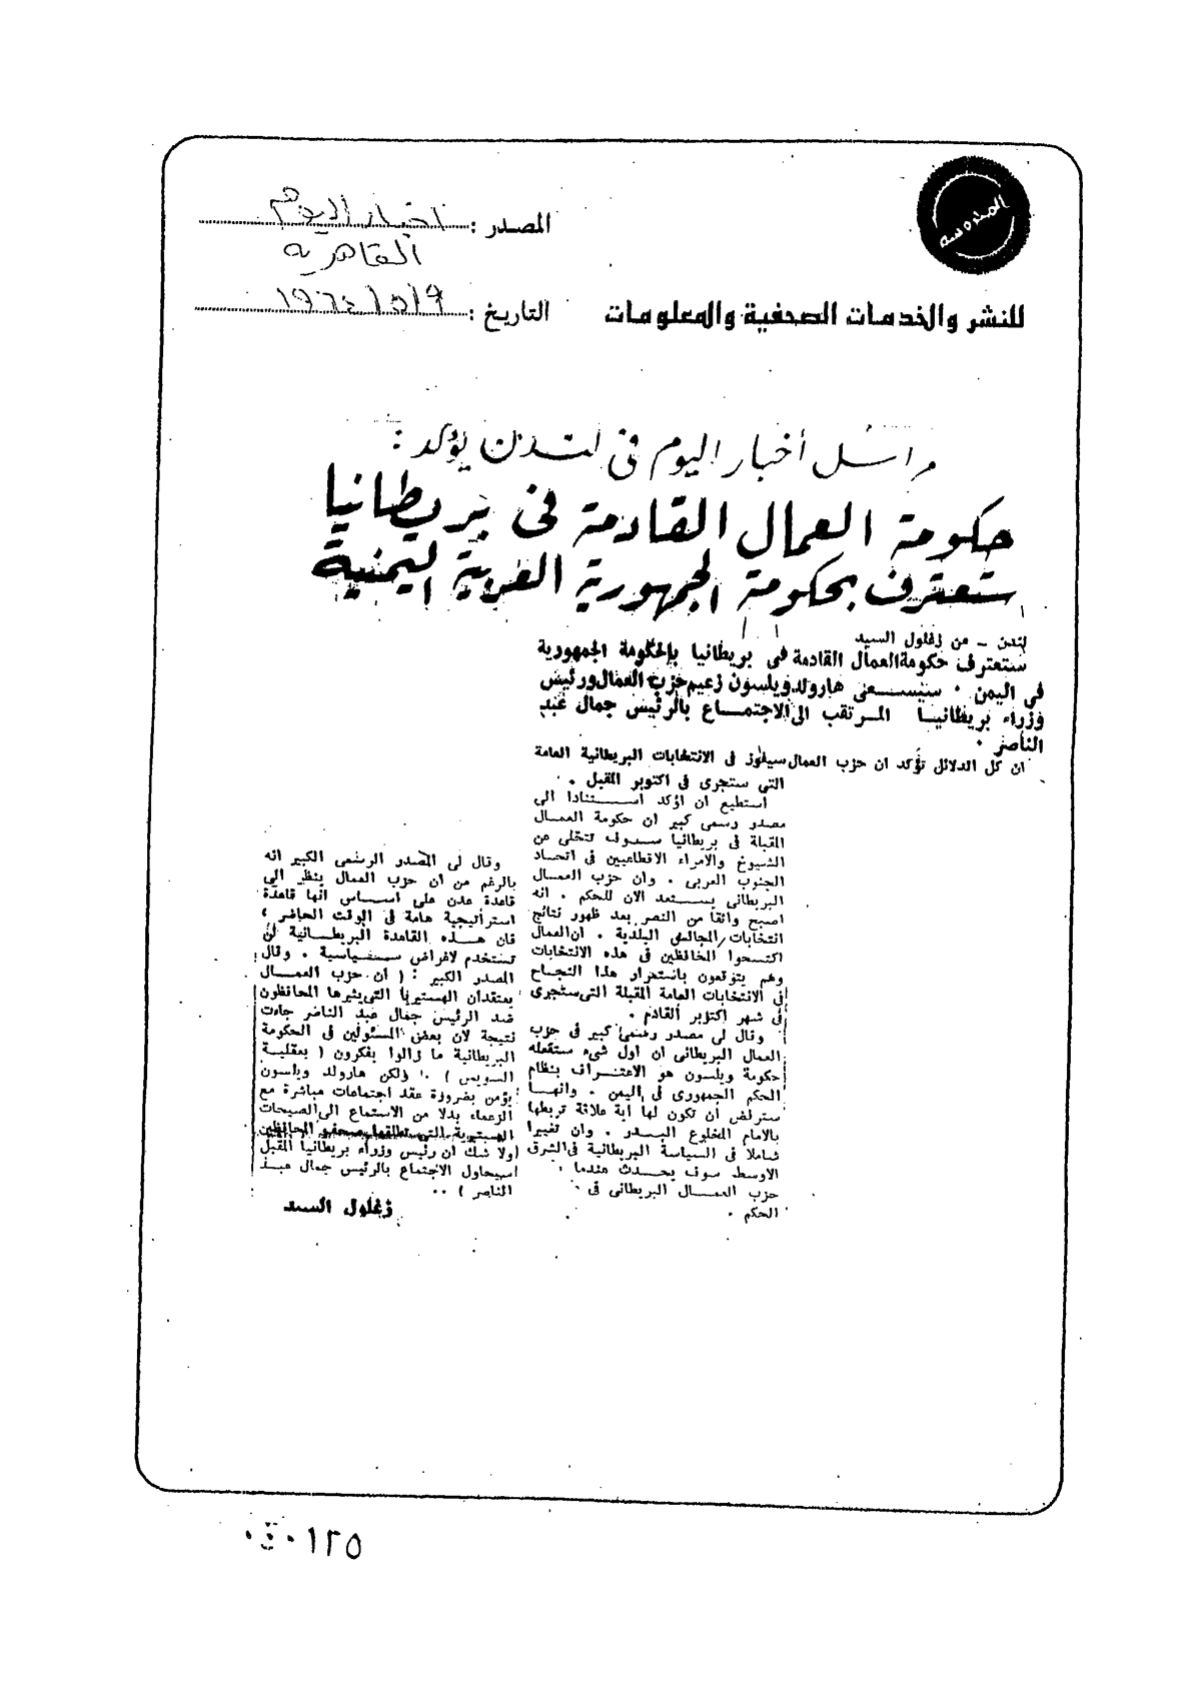 المحروسة
للنشر والخدمات الصحفية والمعلومات
المصدر : اخبار اليوم
القاهرية
التاريخ : ١٩٦٤/٥/٩
مراسل أخبار اليوم فى لندن يؤكد :
حكومة العمال القادمة فى بريطانيا
ستعترف بحكومة الجمهورية العربية اليمنية
لندن - من زغلول السيد
ستعترف حكومة العمال القادمة فى بريطانيا بالحكومة الجمهورية
فى اليمن . سيسعى هارولد ويلسون زعيم حزب العمال ورئيس
وزراء بريطانيا المرتقب الى الاجتماع بالرئيس جمال عبد
الناصر .
ان كل الدلائل تؤكد ان حزب العمال سيفوز فى الانتخابات البريطانية العامة
التى ستجرى فى اكتوبر المقبل .
استطيع ان اؤكد استنادا الى
مصدر رسمى كبير ان حكومة العمال
المقبلة فى بريطانيا سوف تتخلى عن
الشيوخ والامراء الاقطاعيين فى اتحاد
الجنوب العربى . وان حزب العمال
البريطانى يستعد الان للحكم . انه
اصبح واثقا من النصر بعد ظهور نتائج
انتخابات المجالس البلدية . ان العمال
اكتسحوا المحافظين فى هذه الانتخابات
وهم يتوقعون باستمرار هذا النجاح
فى الانتخابات العامة المقبلة التى ستجرى
فى شهر اكتوبر القادم .
وقال لى مصدر رسمى كبير فى حزب
العمال البريطانى ان اول شىء ستفعله
حكومة ويلسون هو الاعتراف بنظام
الحكم الجمهورى فى اليمن . وانها
سترفض ان تكون لها اية علاقة تربطها
بالامام المخلوع البدر . وان تغييرا
شاملا فى السياسة البريطانية فى الشرق
الاوسط سوف يحدث عندما
حزب العمال البريطانى فى
الحكم .
وقال لى المصدر الرسمى الكبير انه
بالرغم من ان حزب العمال ينظر الى
قاعدة عدن على اساس انها قاعدة
استراتيجية هامة فى الوقت الحاضر ،
فان هذه القاعدة البريطانية لن
تستخدم لاغراض سياسية . وقال
المصدر الكبير : ( ان حزب العمال
يعتقد ان الهستيريا التى يثيرها المحافظون
ضد الرئيس جمال عبد الناصر جاءت
نتيجة لان بعض المسئولين فى الحكومة
البريطانية ما زالوا يفكرون ( بعقلية
السويس ) . ولكن هارولد ويلسون
يؤمن بضرورة عقد اجتماعات مباشرة مع
الزعماء بدلا من الاستماع الى الصيحات
الهستيرية التى تطلقها صحف المحافظين
ولا شك ان رئيس وزراء بريطانيا المقبل
سيحاول الاجتماع بالرئيس جمال عبد
الناصر ) ..
زغلول السيد
١٢٥